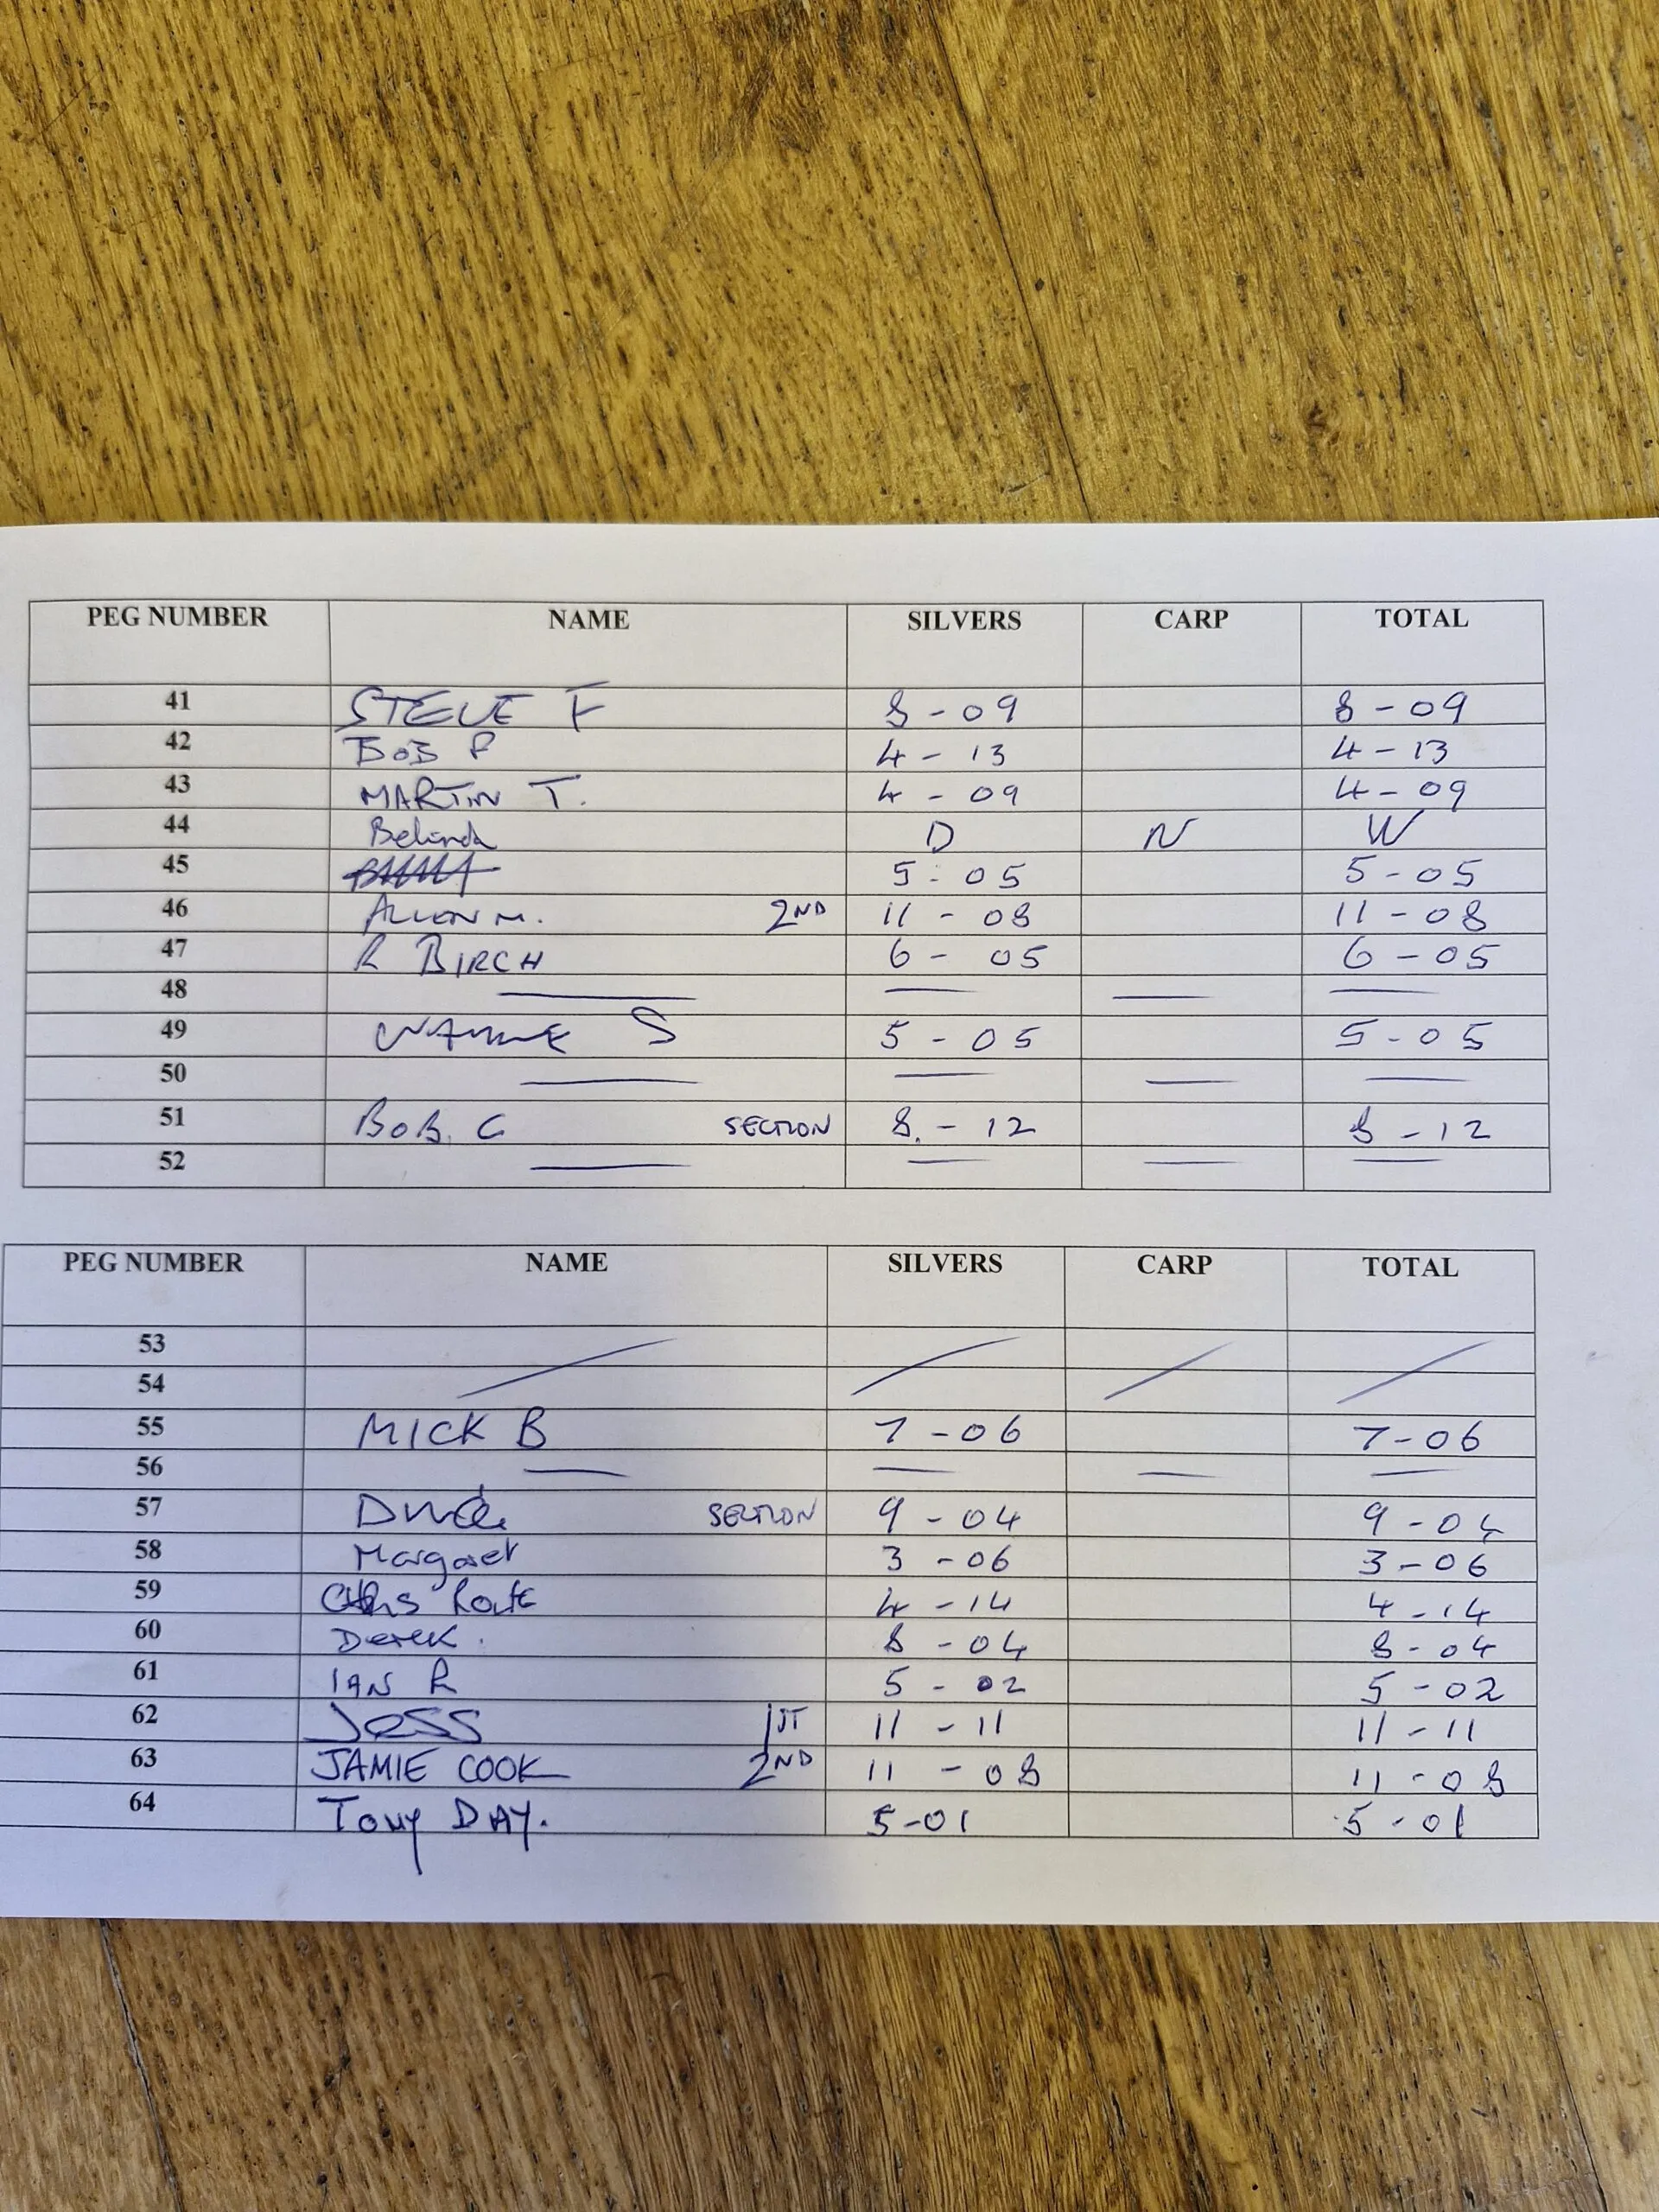 PEG NUMBER NAME SILVERS CARP TOTAL
41 STEVE F 8-09 8-09
42 BOB P 4-13 4-13
43 MARTIN T. 4-09 4-09
44 Belinda D N W
45 5-05 5-05
46 ALLEN M. 2ND 11-08 11-08
47 R BIRCH 6-05 6-05
48
49 S 5-05 5-05
50
51 BOB. C SECTION 8-12 8-12
52
PEG NUMBER NAME SILVERS CARP TOTAL
53
54
55 MICK B 7-06 7-06
56
57 SECTION 9-04 9-04
58 Margaret 3-06 3-06
59 4-14 4-14
60 Derek. 8-04 8-04
61 IAN R 5-02 5-02
62 JESS 1ST 11-11 11-11
63 JAMIE COOK 2ND 11-08 11-08
64 Tony DAY. 5-01 5-01